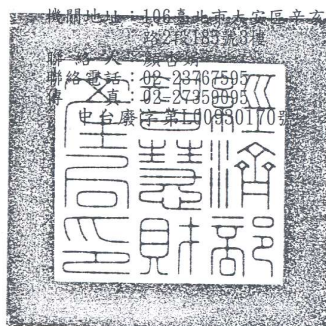 機關地址：106臺北市大安區辛亥
路2段185號3樓
聯絡人：
聯絡電話：02-23767595
傳真：02-27359095
中台廢字第L00930170號
經濟部
智慧財
產局印